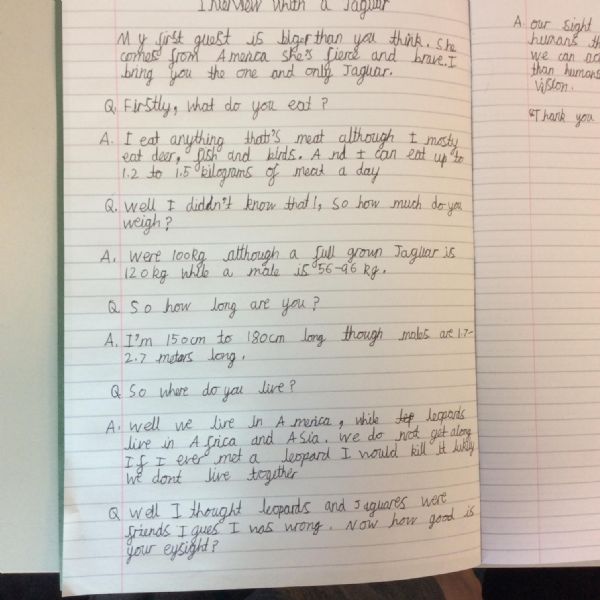 Interview with a Jaguar
My first guest is biger than you think. She
comes from America she's fierce and brave. I
bring you the one and only Jaguar.
Q. Firstly, what do you eat?
A. I eat anything that's meat although I mosty
eat deer, fish and birds. And I can eat up to
1.2 to 1.5 kilograms of meat a day
Q. Well I didn't know that!, so how much do you
weigh?
A. Were 100kg although a full grown Jaguar is
120kg while a male is 56-96 kg.
Q So how long are you?
A. I'm 150cm to 180cm long though males are 1.7-
2.7 meters long.
Q So where do you live?
A. Well we live in America, while leopards
live in Africa and Asia. We do not get along
If I ever met a leopard I would kill it luckily
we dont live together
Q Well I thought leopards and Jaguares were
friends I gues I was wrong. Now how good is
your eyesight?
A. our sight
humans th
we can ac
than humans
vision.
Thank you